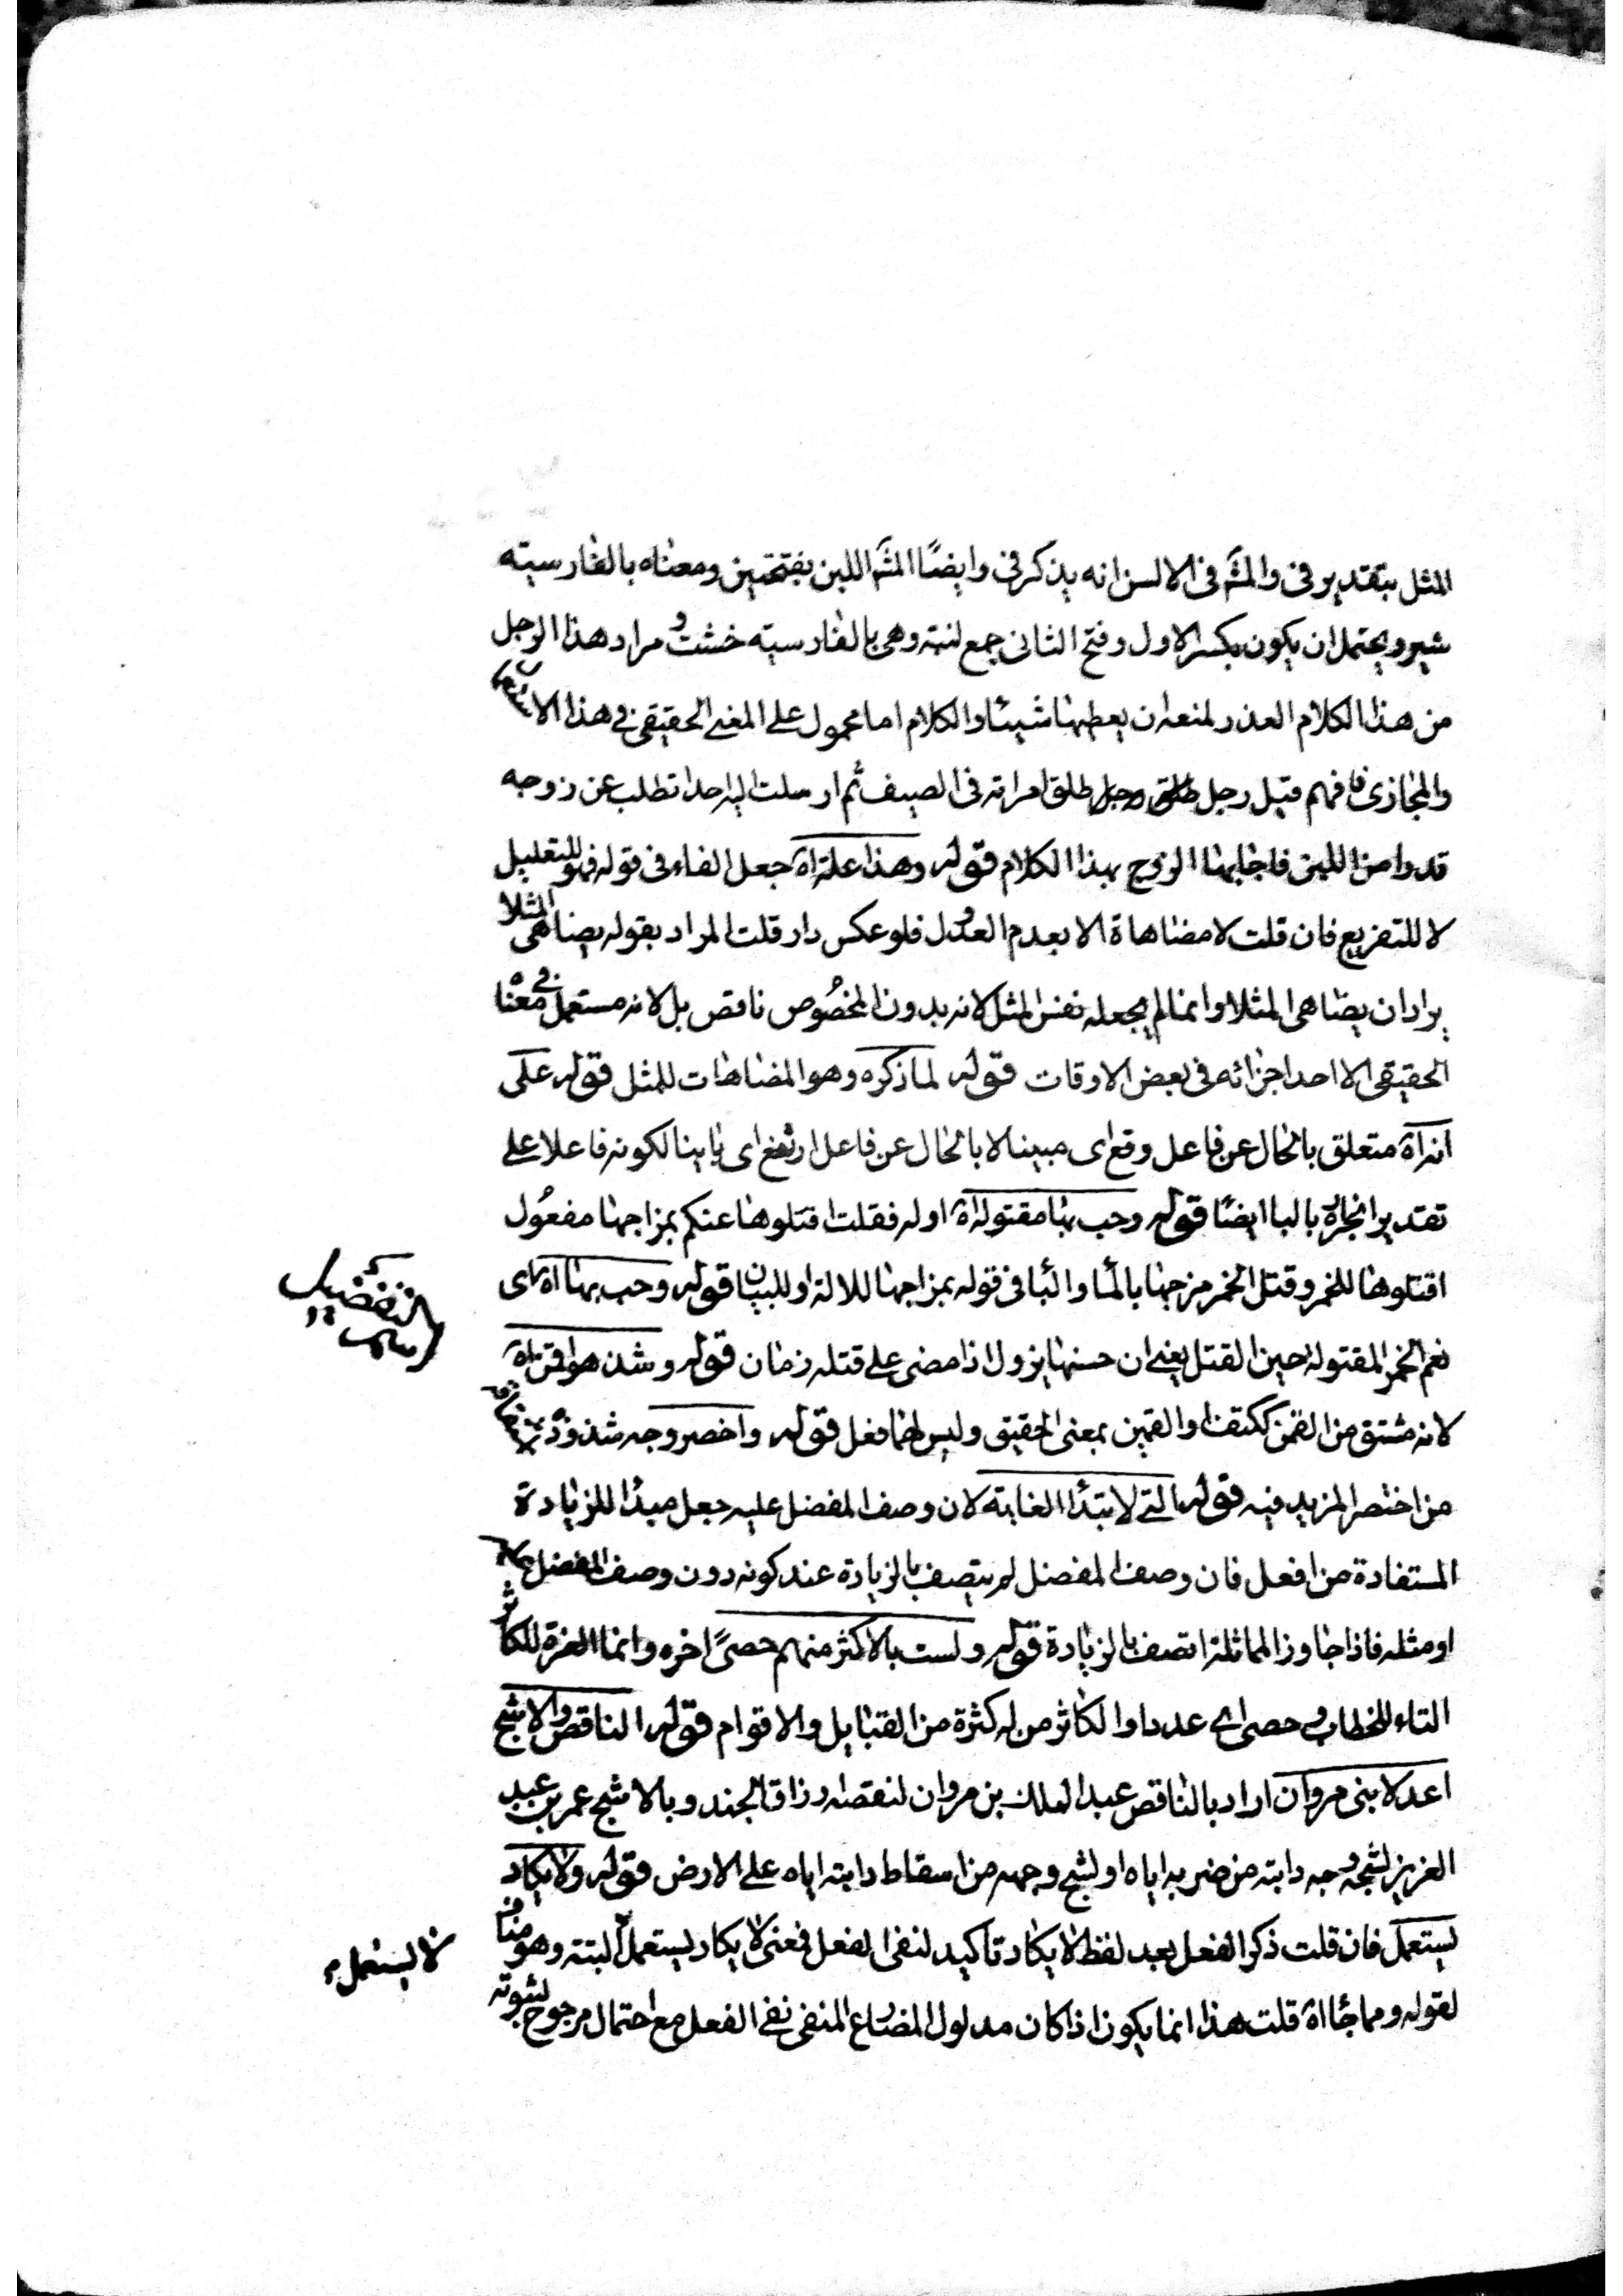 المثل بتقدير فى والمثم فى الالسن انه يذكر فى وايضًا المثم اللبن بفتحتين ومعناه بالفارسيته
شير ويحتمل ان يكون بكسر الاول وفتح الثانى جمع لبنه وهى بالفارسيته خشت و مراد هذا الرجل
من هذا الكلام العذر لمنعه ان يعطيها شيئا والكلام اما محمول على المعنى الحقيقى فى هذا الا
والمجازى فافهم قيل رجل طلق امراته فى الصيف ثم ارسلت اليه احدا تطلب عن زوجه
قدوا من اللبن فاجابها الزوج بهذا الكلام قوله وهذا علة اه جعل الفاء فى قوله فهو للتعليل
لا للتفريع فان قلت لا مضاهاة الا بعدم العدول فلو عكس دار قلت المراد بقوله يضاهى المثلا
يراد ان يضاهى المثلا وانما لم يجعله نفس المثل لانه بدون المخصُوص ناقص بل لانه مستعمل فى معناه
الحقيقى الا احد اجزائه فى بعض الاوقات قوله لما ذكره وهو المضاهات للمثل قوله على
انه اه متعلق بالحال عن فاعل وقع اى مبينا لا بالحال عن فاعل ارتفع اى بانيا لكونه فاعلا على
تقدير انجراره بالبا ايضًا قوله وحب بها مقتولة اه اوله فقلت اقتلوها عنكم بمزاجها مفعُول
اقتلوها للخمر وقتل الخمر مزجها بالما والبا فى قوله بمزاجها للالة او للبيان قوله وحب بها اه اى
نعم الخمر المقتولة حين القتل يعنى ان حسنها يزول اذا مضى على قتله زمان قوله وشذ هو اقمن اه
لانه مشتق من القمن ككتف او القمين بمعنى الحقيق وليس لهما فعل قوله واخصر وجه شذوذه
من اختصر المزيد فيه قوله التى لابتدأ الغاية لان وصف المفضل عليه جعل مبدأ للزيادة
المستفادة من افعل فان وصف المفضل لم يتصف بالزيادة عند كونه دون وصف المفضل عليه
او مثله فاذا جاوز المماثلة اتصف بالزيادة قوله ولست بالاكثر منهم حصىً اخره وانما العزة للكاثر
التاء للخطاب و حصى اى عددا والكاثر من له كثرة من القبايل والاقوام قوله الناقص والاشج
اعدلا بنى مروان اراد بالناقص عبد الملك بن مروان لنقصه ارزاق الجند وبالاشج عمر بن عبد
العزيز لشجه وجه دابته من ضربه اياه او لشج وجهه من اسقاط دابته اياه على الارض قوله ولا يكاد
يستعمل فان قلت ذكر الفعل بعد لفظ لا يكاد تاكيد لنفى الفعل فمعنى لا يكاد يستعمل البتة وهو مناف
لا يستعمل
لقوله ومما جأ اه قلت هذا انما يكون اذا كان مدلول المضارع المنفى نفى الفعل مع احتمال مرجوح لثبوته